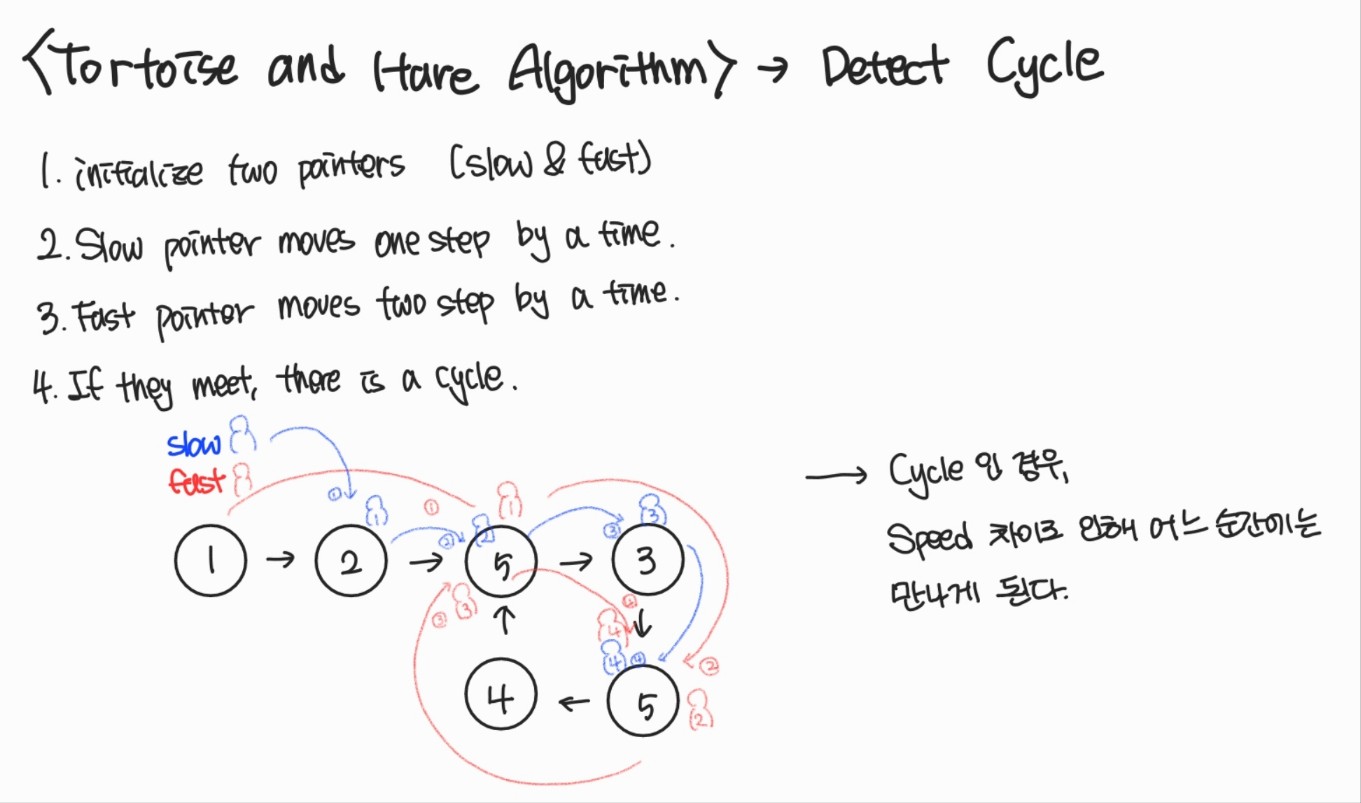 <Tortoise and Hare Algorithm> → Detect Cycle
1. initialize two pointers (slow & fast)
2. Slow pointer moves one step by a time.
3. Fast pointer moves two step by a time.
4. If they meet, there is a cycle.
slow
fast
→ Cycle 인 경우,
Speed 차이로 인해 어느 순간에는
만나게 된다.
① ① 1 1
② 2 ③ 3
1 → 2 → 5 → 3
③ 3 ↑ ④ 4 ↓
4 ④ ②
4 ← 5 2